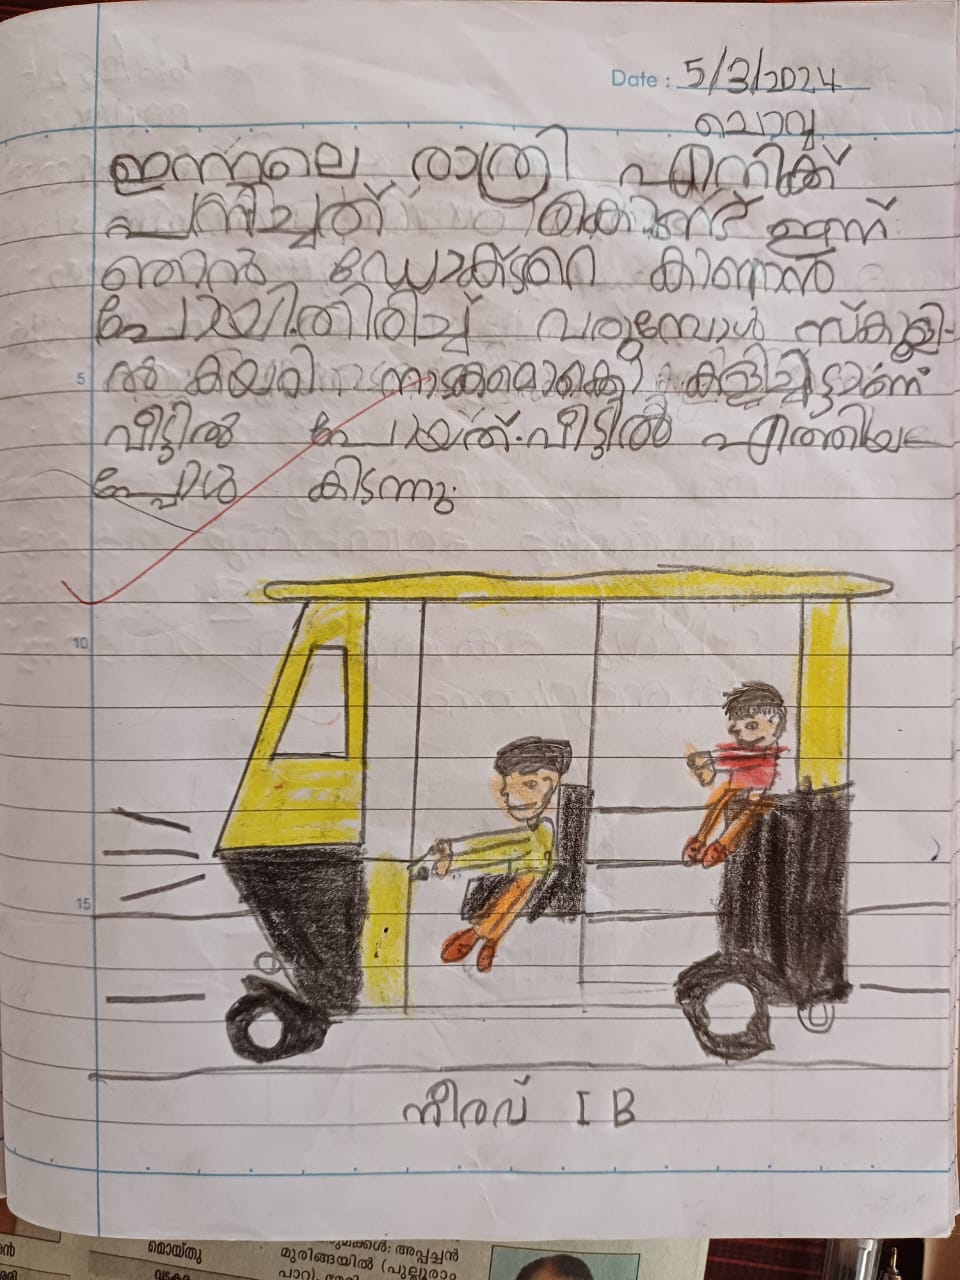 Date : 5/3/2024
ചൊവ്വ
ഇന്നലെ രാത്രി എനിക്ക്
പനിച്ചത് കൊണ്ട് ഇന്ന്
ഞാൻ ഡോക്ടറെ കാണാൻ
പോയി.തിരിച്ച് വരുമ്പോൾ സ്കൂളി-
5 ൽ കയറി നാടകമൊക്കെ കളിച്ചിട്ടാണ്
വീട്ടിൽ പോയത്.വീട്ടിൽ എത്തിയ
പ്പോൾ കിടന്നു.
10
15
നീരവ് I B
മൊയ്തു
മുരിങ്ങയിൽ (പുല്ലൂരാം